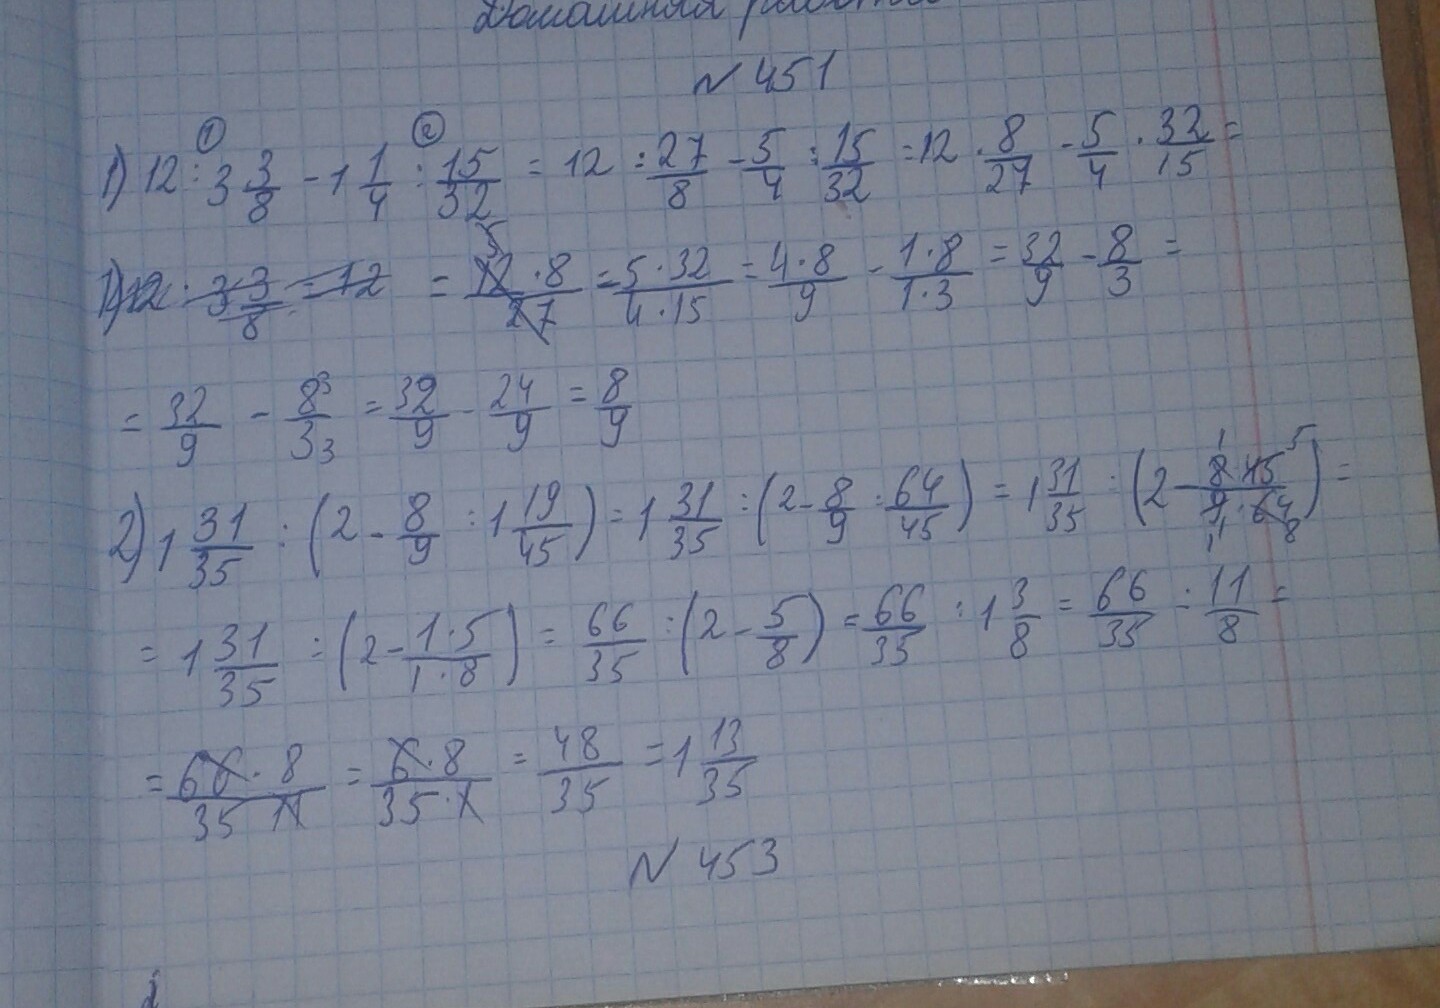 Домашняя работа
N 451
① ②
1) 12 : 3 3/8 - 1 1/4 : 15/32 = 12 : 27/8 - 5/4 : 15/32 = 12 · 8/27 - 5/4 · 32/15 =
1) 12 · 3 3/8 = 12 = 12·8/27 = 5·32/4·15 = 4·8/9 - 1·8/1·3 = 32/9 - 8/3 =
= 32/9 - 8³/3₃ = 32/9 - 24/9 = 8/9
2) 1 31/35 : (2 - 8/9 : 1 19/45) = 1 31/35 : (2 - 8/9 : 64/45) = 1 31/35 : (2 - 8·45/9·64) =
= 1 31/35 : (2 - 1·5/1·8) = 66/35 : (2 - 5/8) = 66/35 : 1 3/8 = 66/35 : 11/8 =
= 66·8/35 11 = 6·8/35·1 = 48/35 = 1 13/35
N 453